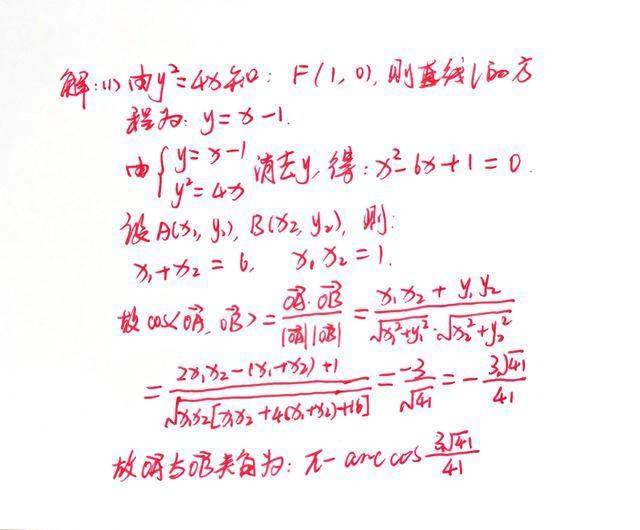 解:(1)由y²=4x知: F(1,0),则直线l的方
程为: y=x-1.
由{y=x-1 y²=4x 消去y,得:x²-6x+1=0.
设A(x₁,y₁),B(x₂,y₂),则:
x₁+x₂=6, x₁x₂=1.
故cos<OA⃗,OB⃗>=OA⃗·OB⃗/|OA⃗||OB⃗|=(x₁x₂+y₁y₂)/(√(x₁²+y₁²)·√(x₂²+y₂²))
=(2x₁x₂-(x₁+x₂)+1)/√(x₁x₂[x₁x₂+4(x₁+x₂)+16])=-3/√41=-3√41/41
故OA⃗与OB⃗夹角为:π-arccos 3√41/41